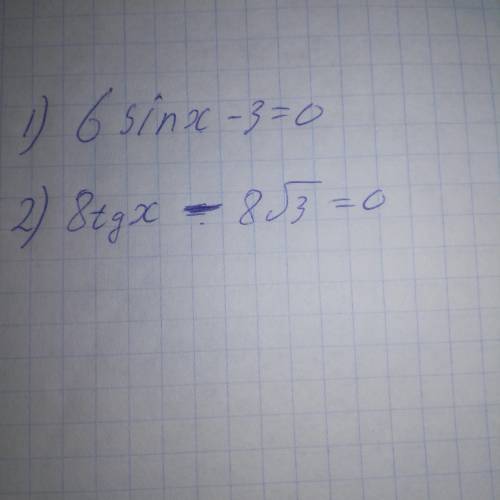 1) 6 sin x - 3 = 0
2) 8tg x - 8√3 = 0